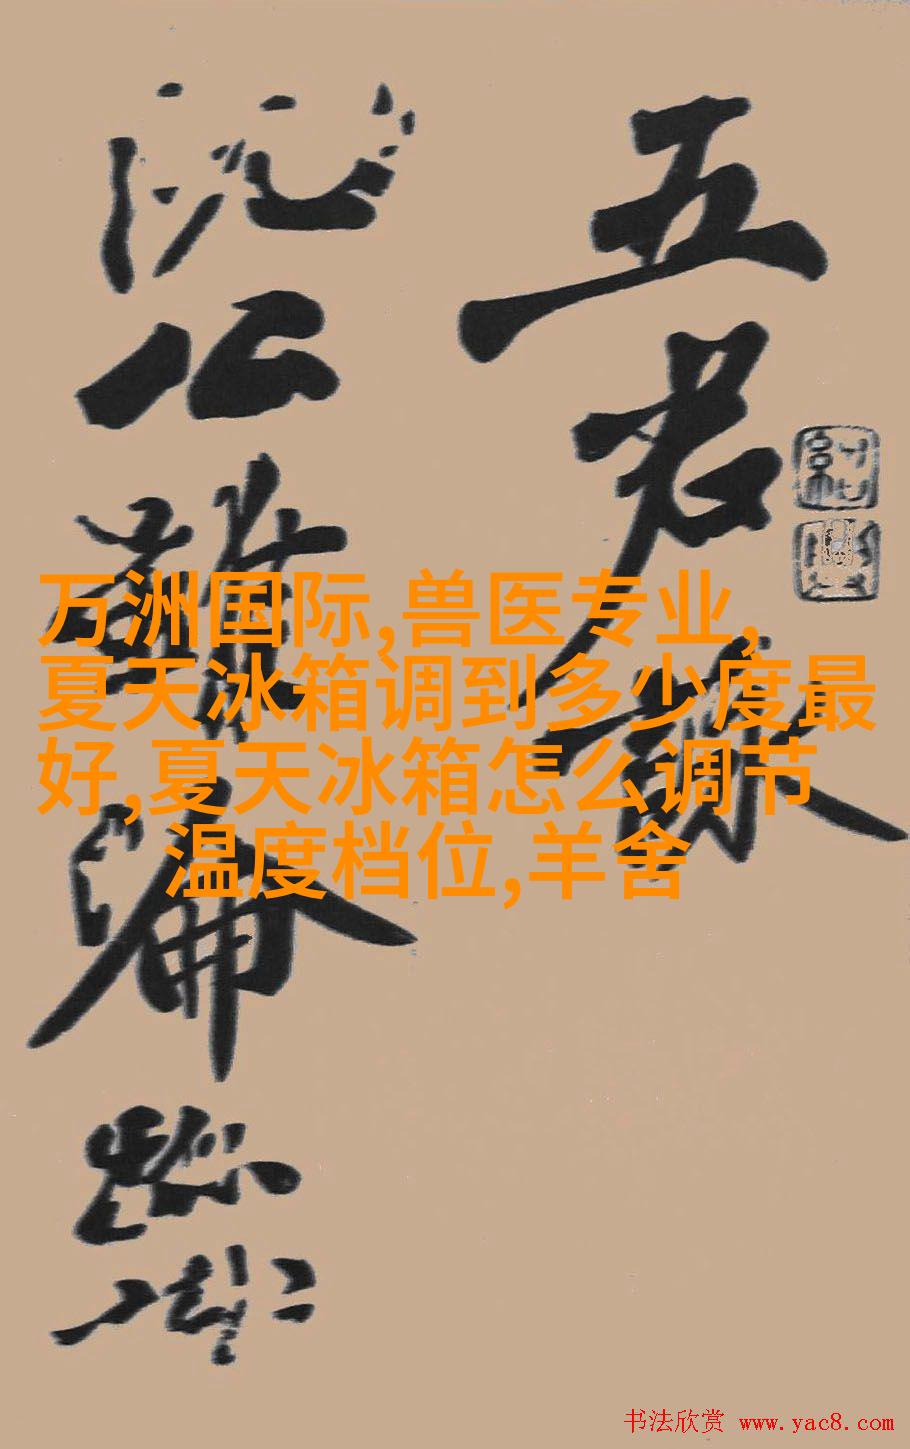 五君詠
阮公雖淪跡
万洲国际,兽医专业,
夏天冰箱调到多少度最
好,夏天冰箱怎么调节
温度档位,羊舍
书法欣赏 www.yac8.com